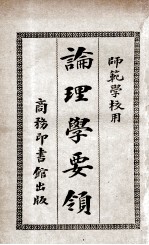 師範學校用
論理學要領
商務印書館出版